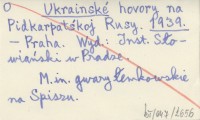 Ukrainské hovory na
Pidkarpatśkoj Rusy. 1939.
– Praha. Wyd: Inst. Sło-
wiański w Pradze.
M. in. gwary Łemkowskie
na Spiszu.